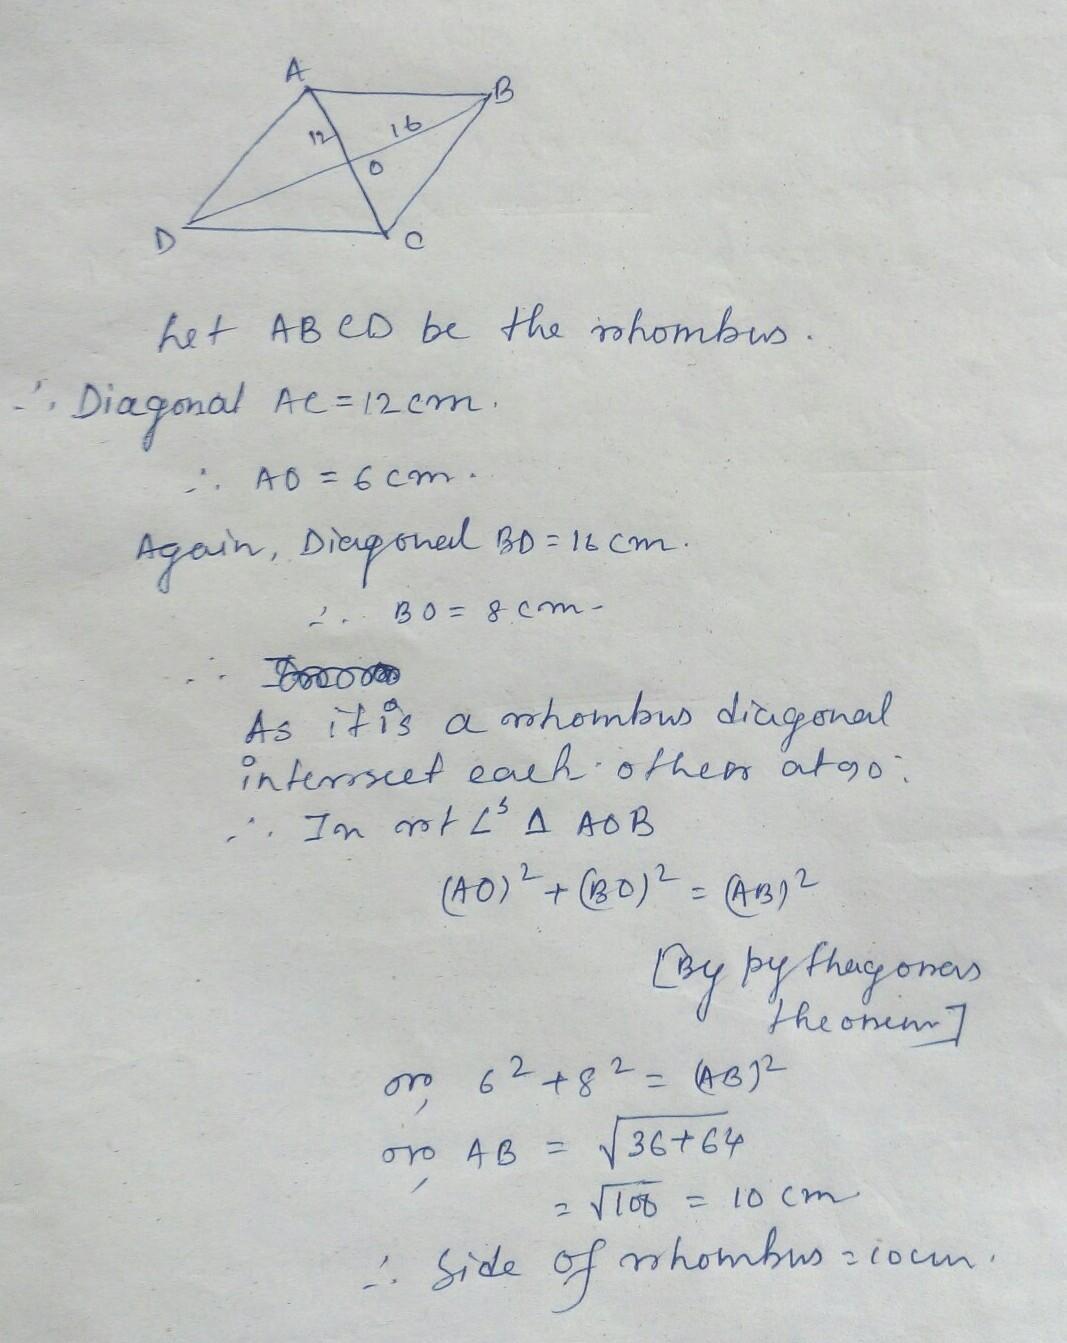 A
B
12
16
O
D
C
Let ABCD be the rhombus.
∴ Diagonal AC = 12 cm.
∴ AO = 6 cm.
Again, Diagonal BD = 16 cm.
∴ BO = 8 cm
∴
As it is a rhombus diagonal
intersect each other at 90°.
∴ In rt ∠ˢ Δ AOB
(AO)² + (BO)² = (AB)²
[By pythagoras
theorem]
or, 6² + 8² = (AB)²
or, AB = √36+64
= √100 = 10 cm
∴ Side of rhombus = 10cm.